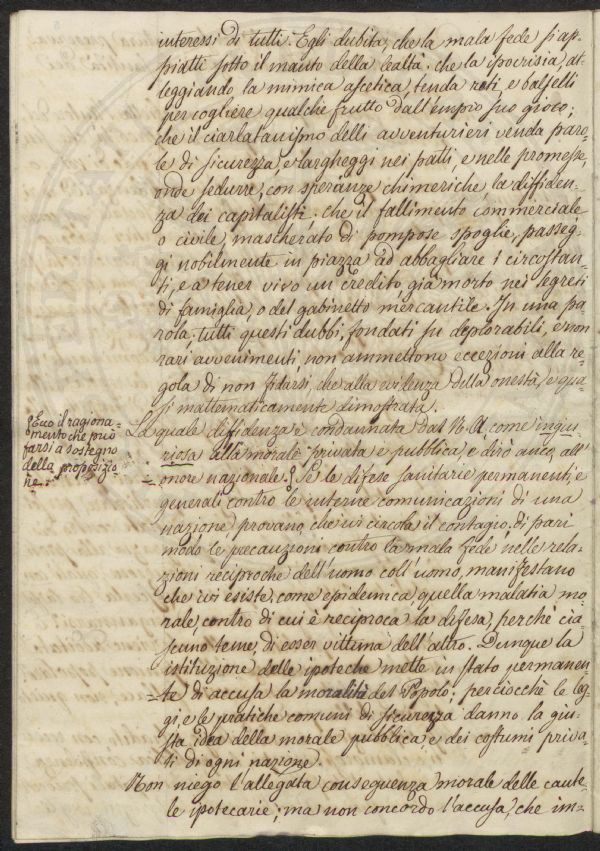 interessi di tutti. Egli dubita, che la mala fede si ap-
piatti sotto il manto della lealtà: che la ipocrisia, at-
teggiando la mimica ascetica, tenda reti, e balzelli
per cogliere qualche frutto dall'empio suo gioco;
che il ciarlatanismo delli avventurieri venda paro-
le di sicurezza, e largheggi nei patti, e nelle promesse,
onde sedurre, con speranze chimeriche, la diffiden-
za dei capitalisti: che il fallimento commerciale
o civile, mascherato di pompose spoglie, passeg-
gi nobilmente in piazza ad abbagliare i circostan-
ti, e a tener vivo un credito già morto nei segreti
di famiglia, o del gabinetto mercantile. In una pa-
rola; tutti questi dubbi, fondati su deplorabili, e non
rari avvenimenti, non ammettono eccezioni alla re-
gola di non fidarsi, che alla evidenza della onestà, e qua-
si mattematicamente dimostrata.
La quale diffidenza è condannata dal come ingiu-
riosa alla morale privata e pubblica, e dirò anco, all'
onore nazionale. Se le difese sanitarie permanenti, e
generali contro le interne comunicazioni di una
nazione, provano, che vi circola il contagio, di pari
modo le precauzioni contro la mala fede nelle rela-
zioni reciproche dell'uomo coll'uomo, manifestano
che vi esiste, come epidemica, quella malatia mo-
rale, contro di cui è reciproca la difesa, perchè cia-
scuno teme, di esser vittima dell'altro. Dunque la
istituzione delle ipoteche mette in stato permanen-
te di accusa la moralità del Popolo; perciocchè le leg-
gi, e le pratiche comuni di sicurezza danno la giu-
sta idea della morale pubblica, e dei costumi priva-
ti di ogni nazione.
Non niego l'allegata conseguenza morale delle caute-
le ipotecarie; ma non concordo l'accusa, che im-
Ecco il ragiona-
mento che può
farsi a sostegno
della proposizio-
ne.